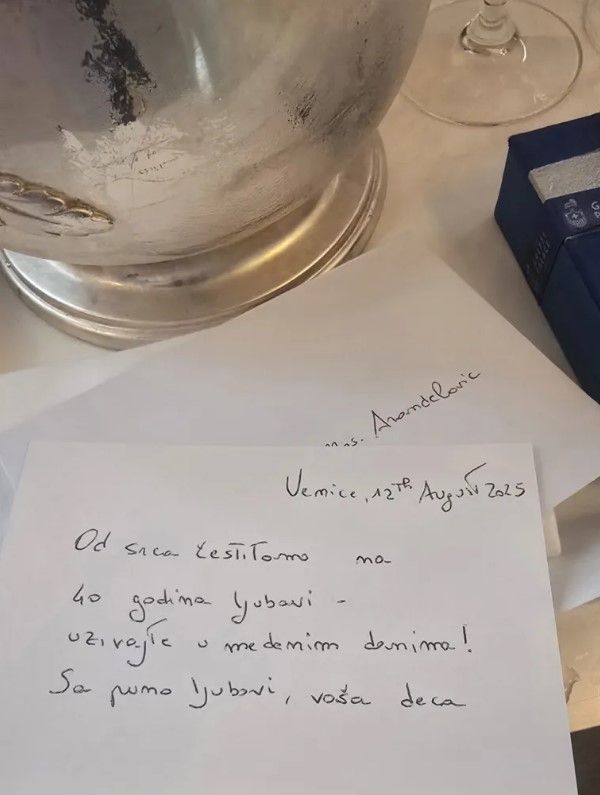 Mrs. Arandelovic
Venice, 12th August 2025
Od srca čestitamo na
40 godina ljubavi -
uživajte u medenim danima!
Sa puno ljubavi, vaša deca
G